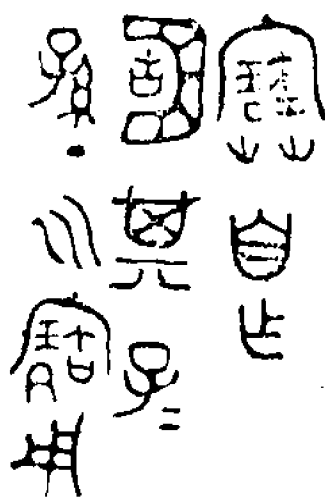 自乍
簠其子=
孫=永寶用